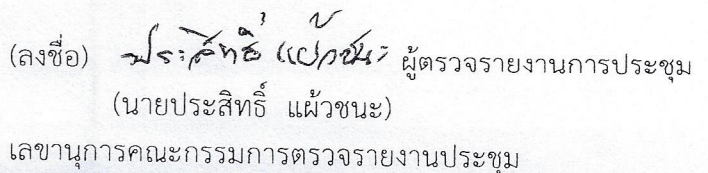 (ลงชื่อ) ประสิทธิ์ แผ้วชนะ ผู้ตรวจรายงานการประชุม
(นายประสิทธิ์ แผ้วชนะ)
เลขานุการคณะกรรมการตรวจรายงานประชุม